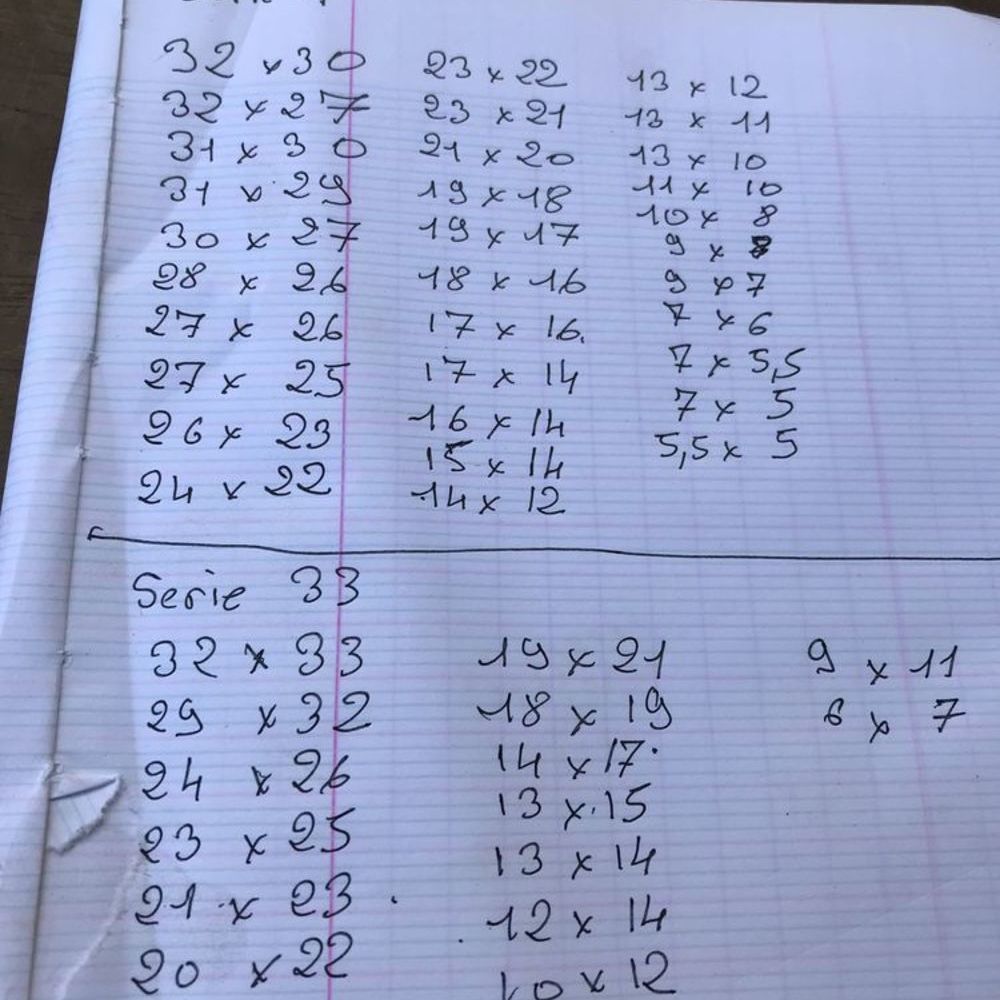 32 x 30
32 x 27
31 x 30
31 x 29
30 x 27
28 x 26
27 x 26
27 x 25
26 x 23
24 x 22
23 x 22
23 x 21
21 x 20
19 x 18
19 x 17
18 x 16
17 x 16
17 x 14
16 x 14
15 x 14
14 x 12
13 x 12
13 x 11
13 x 10
11 x 10
10 x 8
9 x 8
9 x 7
7 x 6
7 x 5,5
7 x 5
5,5 x 5
Serie 33
32 x 33
29 x 32
24 x 26
23 x 25
21 x 23
20 x 22
19 x 21
18 x 19
14 x 17
13 x 15
13 x 14
12 x 14
10 x 12
9 x 11
6 x 7